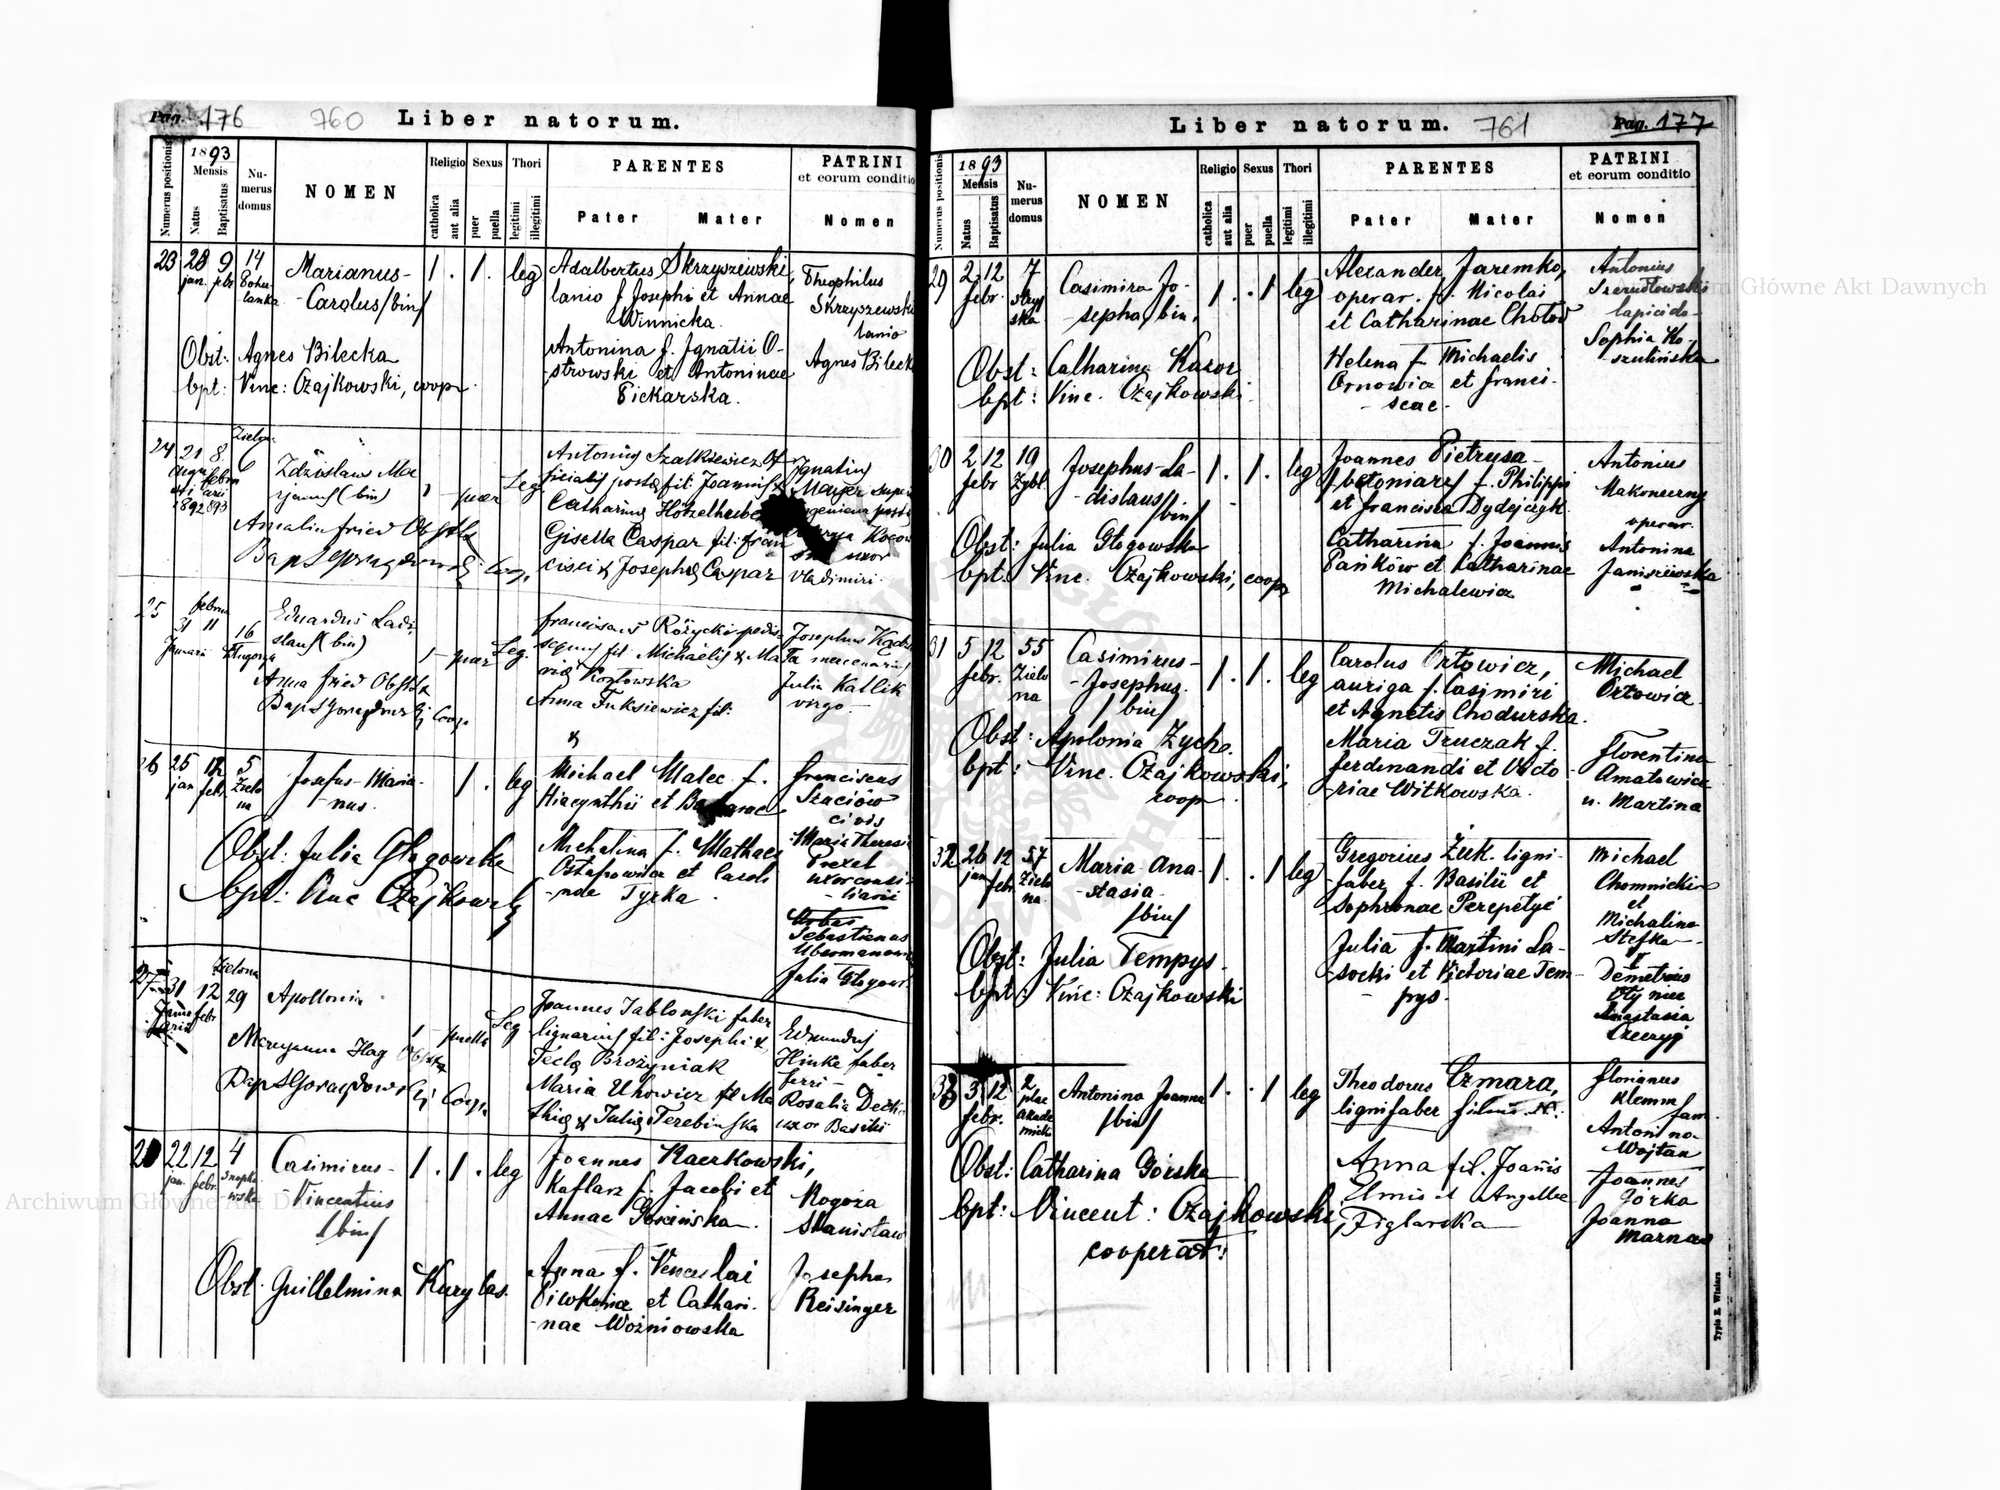 Pag. 176 760 Liber natorum.
Numerus positionis
1893
Mensis
Natus
Baptisatus
Numerus domus
NOMEN
Religio
catholica
aut alia
Sexus
puer
puella
Thori
legitimi
illegitimi
PARENTES
Pater Mater
PATRINI
et eorum conditio
Nomen
23 28 9 14
jan. febr.
Marianus-
-Carolus/bin/
1 . 1 . leg
Adalbertus Skrzyszewski,
lanio f. Josephi et Annae
Winnicka.
Antonina f. Ignatii O-
-strowski et Antoninae
Piekarska.
Theophilus
Skrzyszewski
lanio
Agnes Bileck
Obst: Agnes Bilecka
bpt: Vinc: Czajkowski, coop
24 21 8
1892 893
Zdzisław Ma
ryanus (bin)
1 - puer Leg
Antonius Szalkiewicz Of
ficialis postae fil: Joannis &
Catharina
Gisella Caspar fil: Fran
cisci & Josepha Caspar
Ignatius
Mayer
uxor
Vladimiri
Amalia Fried Obstetx
25 31 11
Januarii
16
Eduardus Ladi
slaus (bin)
1 - puer Leg.
Franciscus Różycki
fil Michaelis & Ma
ria Kozłowska
Anna Fuksiewicz fil:
&
Josephus
Julia Kallik
virgo
Anna Fried Obstetx
26 25 12 5
jan febr. Zielo
na
Josefus-Maria-
-nus.
1 . 1 . leg
Michael Malec f.
Hiacynthii et Barbarae
Michalina f. Mathaei
Ostapowicz et Caroli
-nae Tyrka.
Franciscus
Szaciów
civis
Maria Theresia
Prexel
uxor consi-
-liarii
Sebastianus
Julia Głogows
Obst: Julia Głogowska
bpt: Vinc Czajkowski
27 31 12 29
Zielona
febr
Apollonia
1 - puella Leg
Joannes Jabłonski faber
lignarius fil: Josephi &
Tecla Brożyniak
Maria Uhowicz fil Ma
thia & Julia Terebinska
Edmundus
Hinke faber
ferri -
Rosalia
uxor Basili
Maryanna Hag Obstetx
28 22 12 4
jan. febr.
Casimirus-
-Vincentius
/bin/
1 . 1 . leg
Joannes Kaczkowski,
Kaflarz f. Jacobi et
Annae Gościńska.
Anna f. Venceslai
Piwkowicz et Cathari-
-nae Woźniowska
Rogoza
Stanisław
Josepha
Reisinger
Obst: Guillelmina Kurylas.
Liber natorum. 761 Pag. 177
Numerus positionis
1893
Mensis
Natus
Baptisatus
Numerus domus
NOMEN
Religio
catholica
aut alia
Sexus
puer
puella
Thori
legitimi
illegitimi
PARENTES
Pater Mater
PATRINI
et eorum conditio
Nomen
29 2 12 7
febr. Stryj
ska
Casimira Jo-
-sepha/bin.
1 . . 1 leg
Alexander Jaremko,
operar. f. Nicolai
et Catharinae Chołod
Helena f. Michaelis
Ornowicz et Franci-
- scae -
Antonius
lapicida
Sophia Ko-
szulińska
Obst: Catharina Kazor
bpt: Vinc. Czajkowski.
30 2 12 19
febr Zybl
Josephus-La-
-dislaus
/bin/
1 . 1 . leg
Joannes Pietrusa-
/betoniarz/ f. Philippi
et Francisca Dydejczyk.
Catharina f. Joannis
Pańków et Catharinae
Michalewicz
Antonius
Makoneczny
operar.
Antonina
Janiszewska
Obst: Julia Głogowska
bpt. Vinc. Czajkowski, coop
31 5 12 55
febr. Zielo
na
Casimirus-
-Josephus.
/bin/
1 . 1 . leg
Carolus Orłowicz,
auriga f. Casimiri
et Agnetis Chodurska.
Maria Truczak f.
Ferdinandi et Victo
riae Witkowska.
Michael
Orłowicz
Florentina
Amatowicz
u. Martina
Obst: Apolonia Zycho.
bpt: Vinc. Czajkowski,
coop
32 26 12 57
jan febr. Zielo
na
Maria-Ana-
-stasia-
/bin/
1 . . 1 leg
Gregorius Żuk. ligni-
faber f. Basilii et
Sophronae Perepetyć
Julia f. Martini La-
-socki et Victoriae Tem-
- pys.
Michael
Chomnicki
et
Michalina
Stefka
Demetrius
Olyniec
Anastasia
Obst: Julia Tempys.
bpt: Vinc: Czajkowski
33 3 12 2
febr. plac
akade
micki
Antonina Joanna
/bin/
1 . . 1 leg
Theodorus Czmara,
lignifaber filius N.
Anna fil. Joañis
Elmis et Angellae
Figlarska
Florianus
Klemm
fam.
Antonina-
Wojtan
Joannes
Górka
Joanna
Obst: Catharina Górska
bpt: Vincent: Czajkowski
cooperat:
Typis E. Winiarz
Archiwum Główne Akt Dawnych
Główne Akt Dawnych